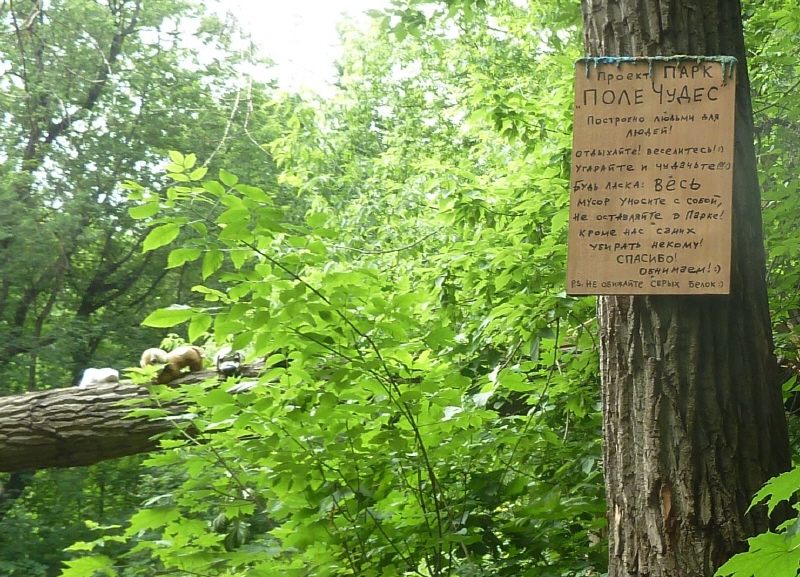 Проект ПАРК
"ПОЛЕ ЧУДЕС"
Построено людьми для
людей!
отдыхайте! веселитесь!:)
Угарайте и чудачьте!!!:)
Будь ласка: ВЕСЬ
мусор уносите с собой,
не оставляйте в Парке!
Кроме нас самих
убирать некому!
СПАСИБО!
Обнимаем!:)
P.S. НЕ ОБИЖАЙТЕ СЕРЫХ БЕЛОК:)